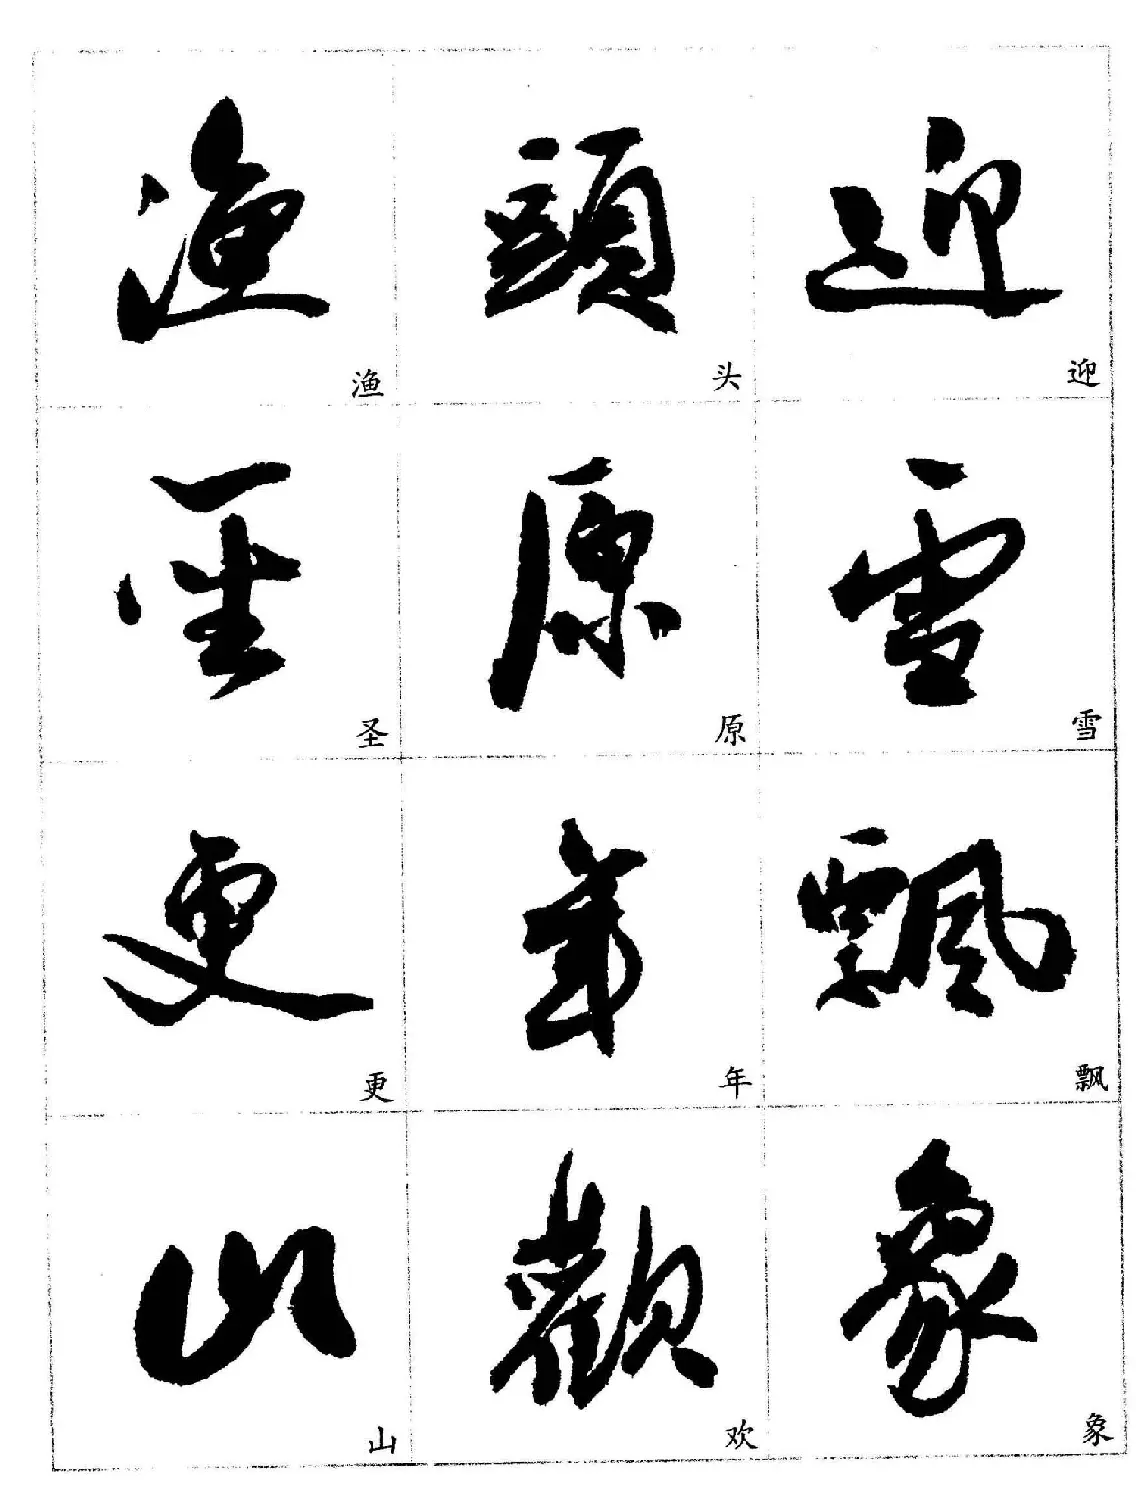 渔 頭 迎
渔 头 迎
原 雪
圣 原 雪
更 年 飄
更 年 飘
山 觀 象
山 欢 象